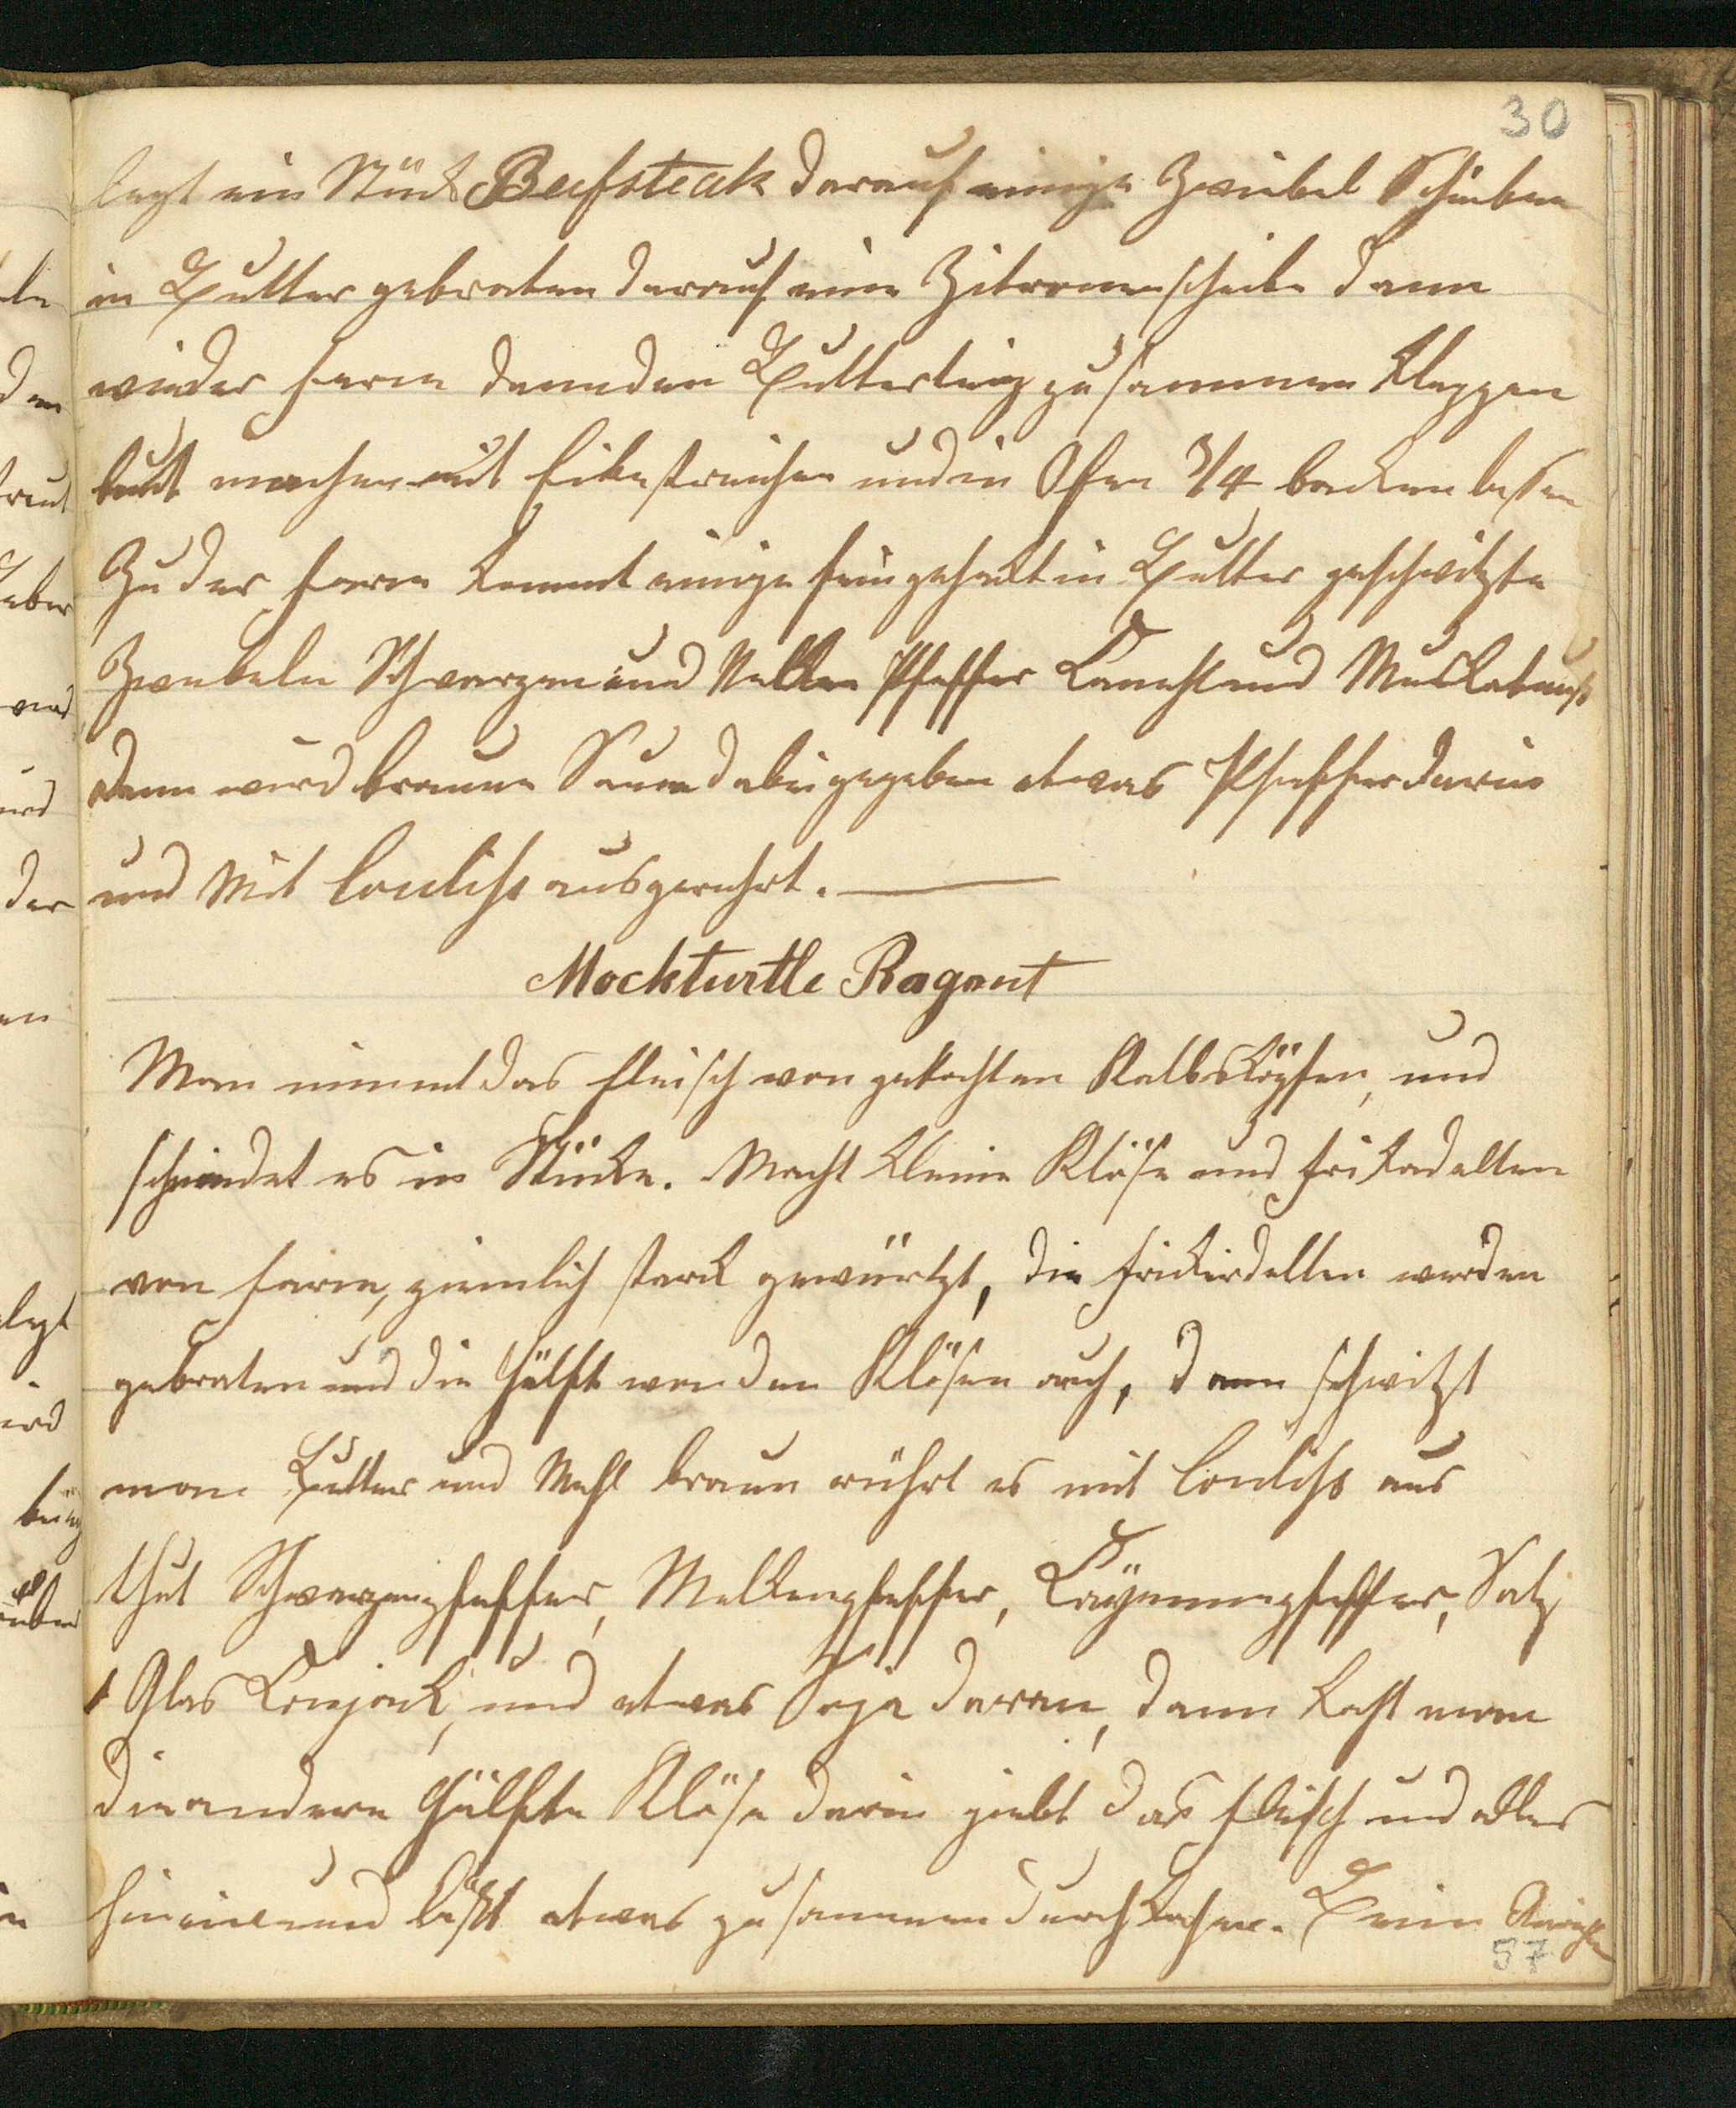 30
legt ein Stück Beefsteak darauf einige Zwiebel Scheiben
in Butter gebraten darauf eine Zitronenscheibe dann
wieder Farce dann den Butterteig zusammen klappen
bunt machen mit Ei bestreichen und in Ofen 3/4 backen lassen
Zu der Farce kommt einige fein gehackt in Butter geschwitzte
Zwiebeln Schwarzen und Nelken Pfeffer Canehl und Muskatnuß
dann wird braune Sauce dabei gegeben etwas Pfeffer darin
und Mit Coulihs ausgerührt.
Mockturtle Ragout
Man nimmt das Fleisch von gekochten Kalbsköpfen, und
schneidet es in Stücke. Macht kleine Klöse und Frikadellen
von Farce, ziemlich stark gewürtzt, die Frikadellen werden
gebraten und die Hälft von den Klösen auch, dann schwitzt
man Butter und Mehl braun rührt es mit Coulihs aus
thut Schwarzenpfeffer, Nelkenpfeffer, Cayennepfeffer, Salz
1 Glas Conjack, und etwas Soja daran, dann kocht man
die andere Hälfte Klöse darin giebt das Fleisch und alles
hinein und läßt etwas zusammen durchkochen. Beim Anrichten
57